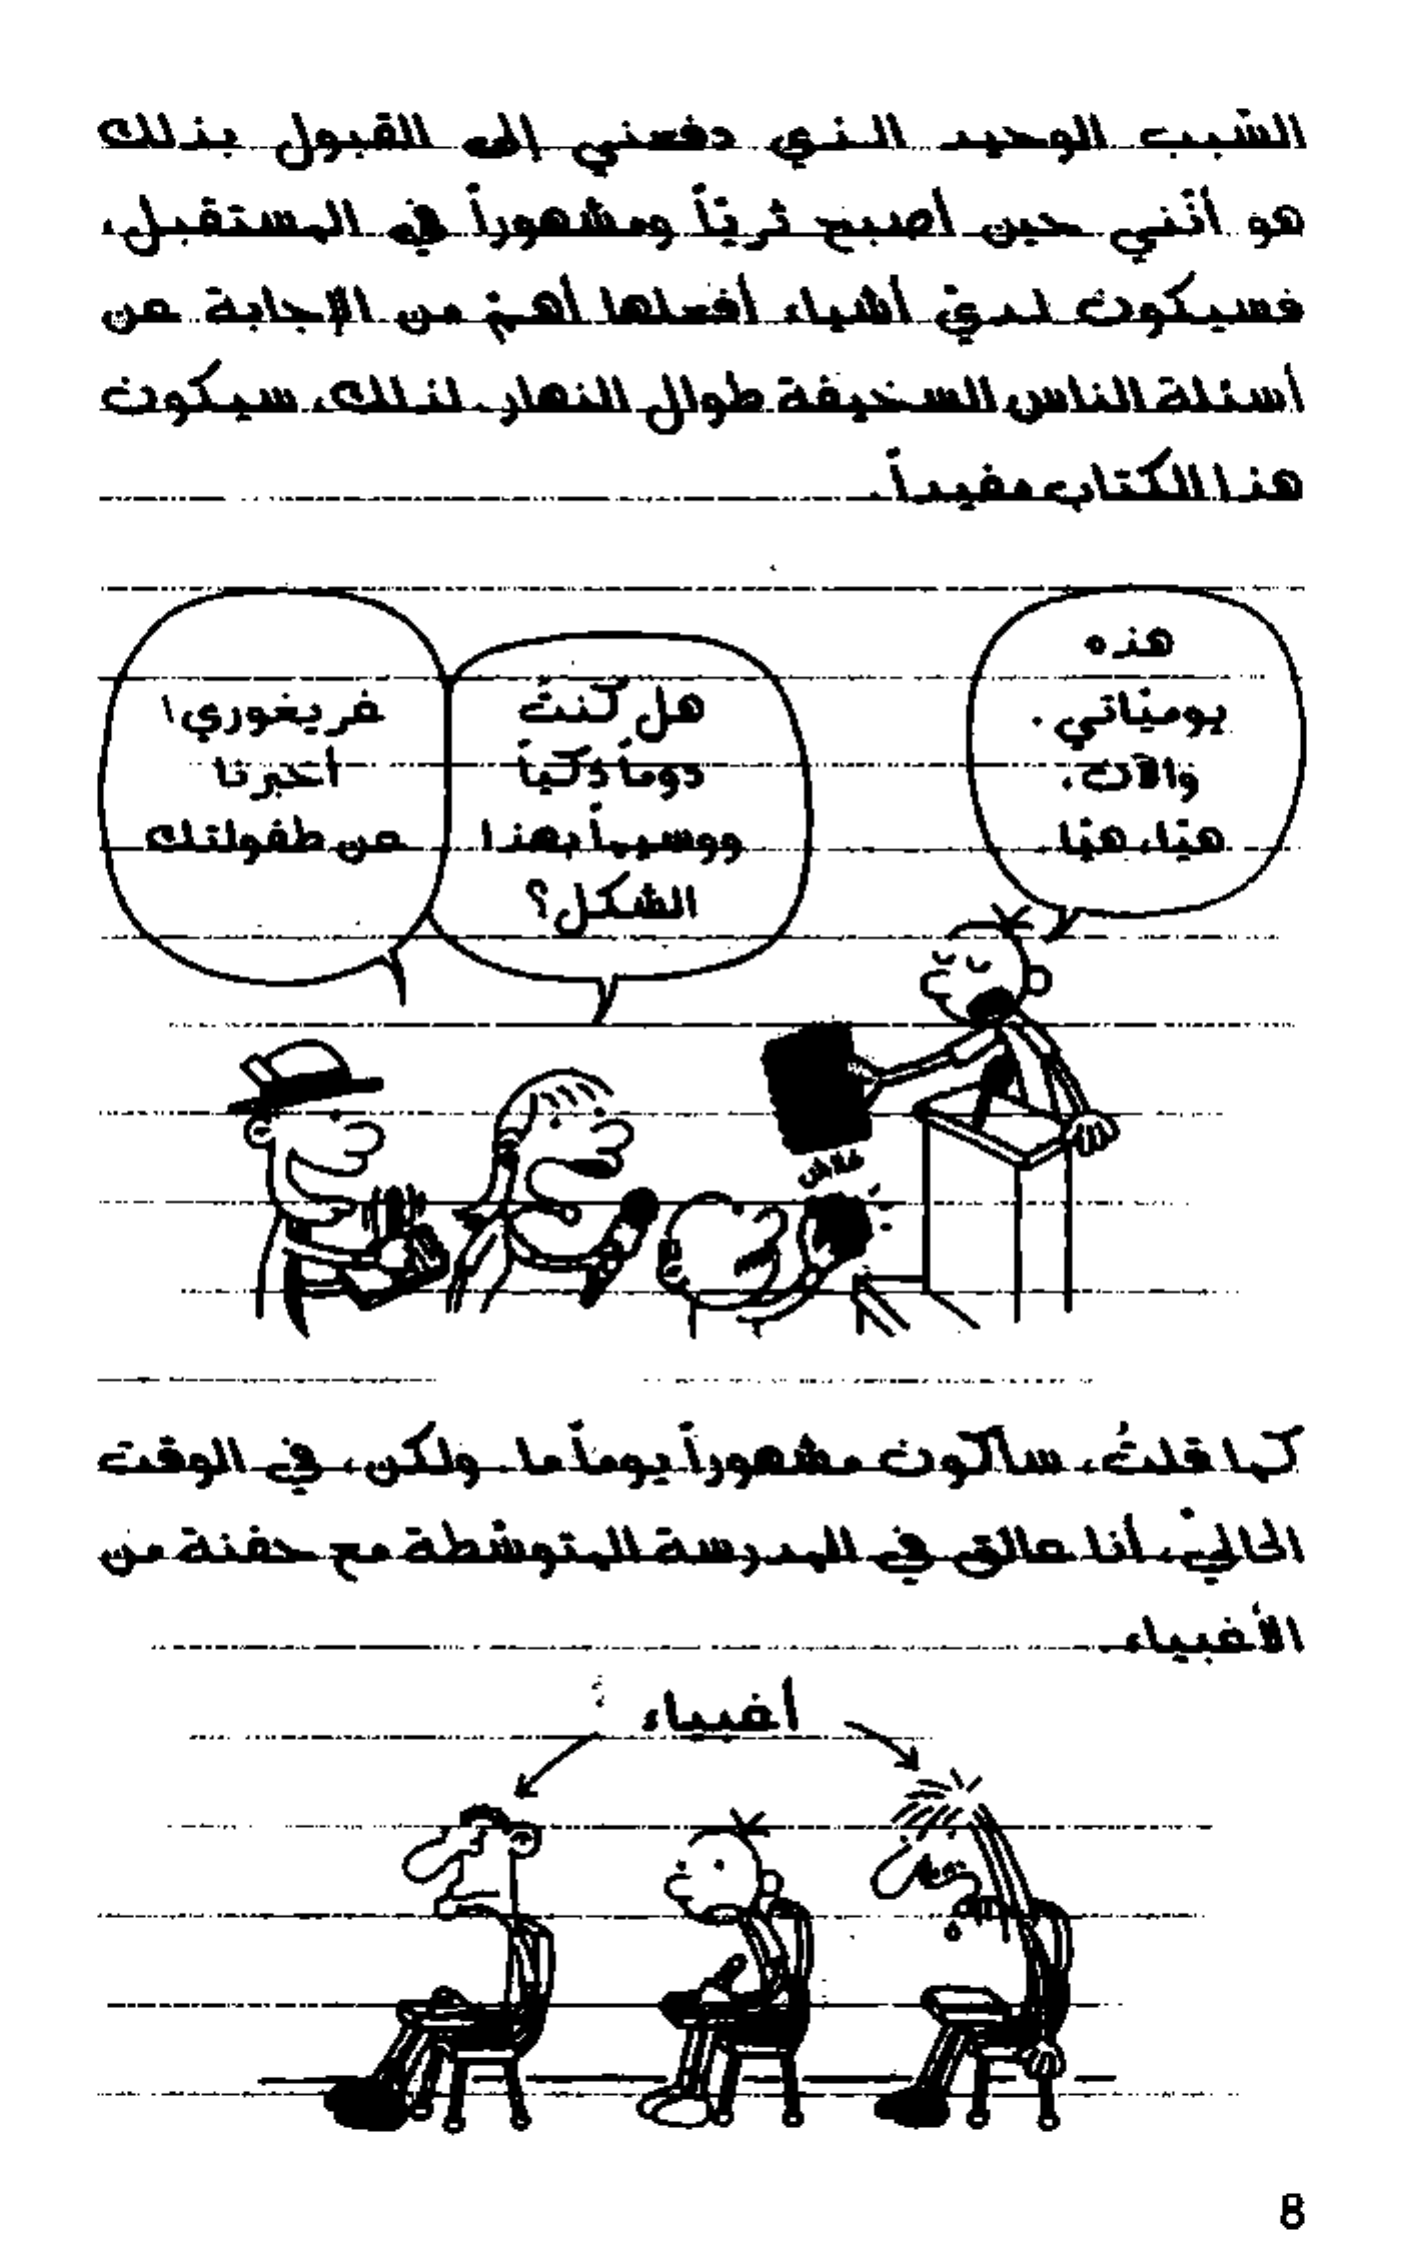 السّبب الوحيد الذي دفعني إلى القبول بذلك
هو أنّني حين أصبح ثريّاً ومشهوراً في المستقبل،
فسيكون لديّ أشياء أفعلها أهمّ من الإجابة عن
أسئلة الناس السخيفة طوال النهار. لذلك، سيكون
هذا الكتاب مفيداً.
هذه
يوميّاتي.
والآن،
هيّا، هيّا.
هل كنتَ
دوماً ذكياً
ووسيماً بهذا
الشكل؟
غريغوري!
أخبرنا
عن طفولتك
فلاش
كما قلتُ، سأكون مشهوراً يوماً ما. ولكن، في الوقت
الحاليّ، أنا عالق في المدرسة المتوسّطة مع حفنة من
الأغبياء.
أغبياء
8